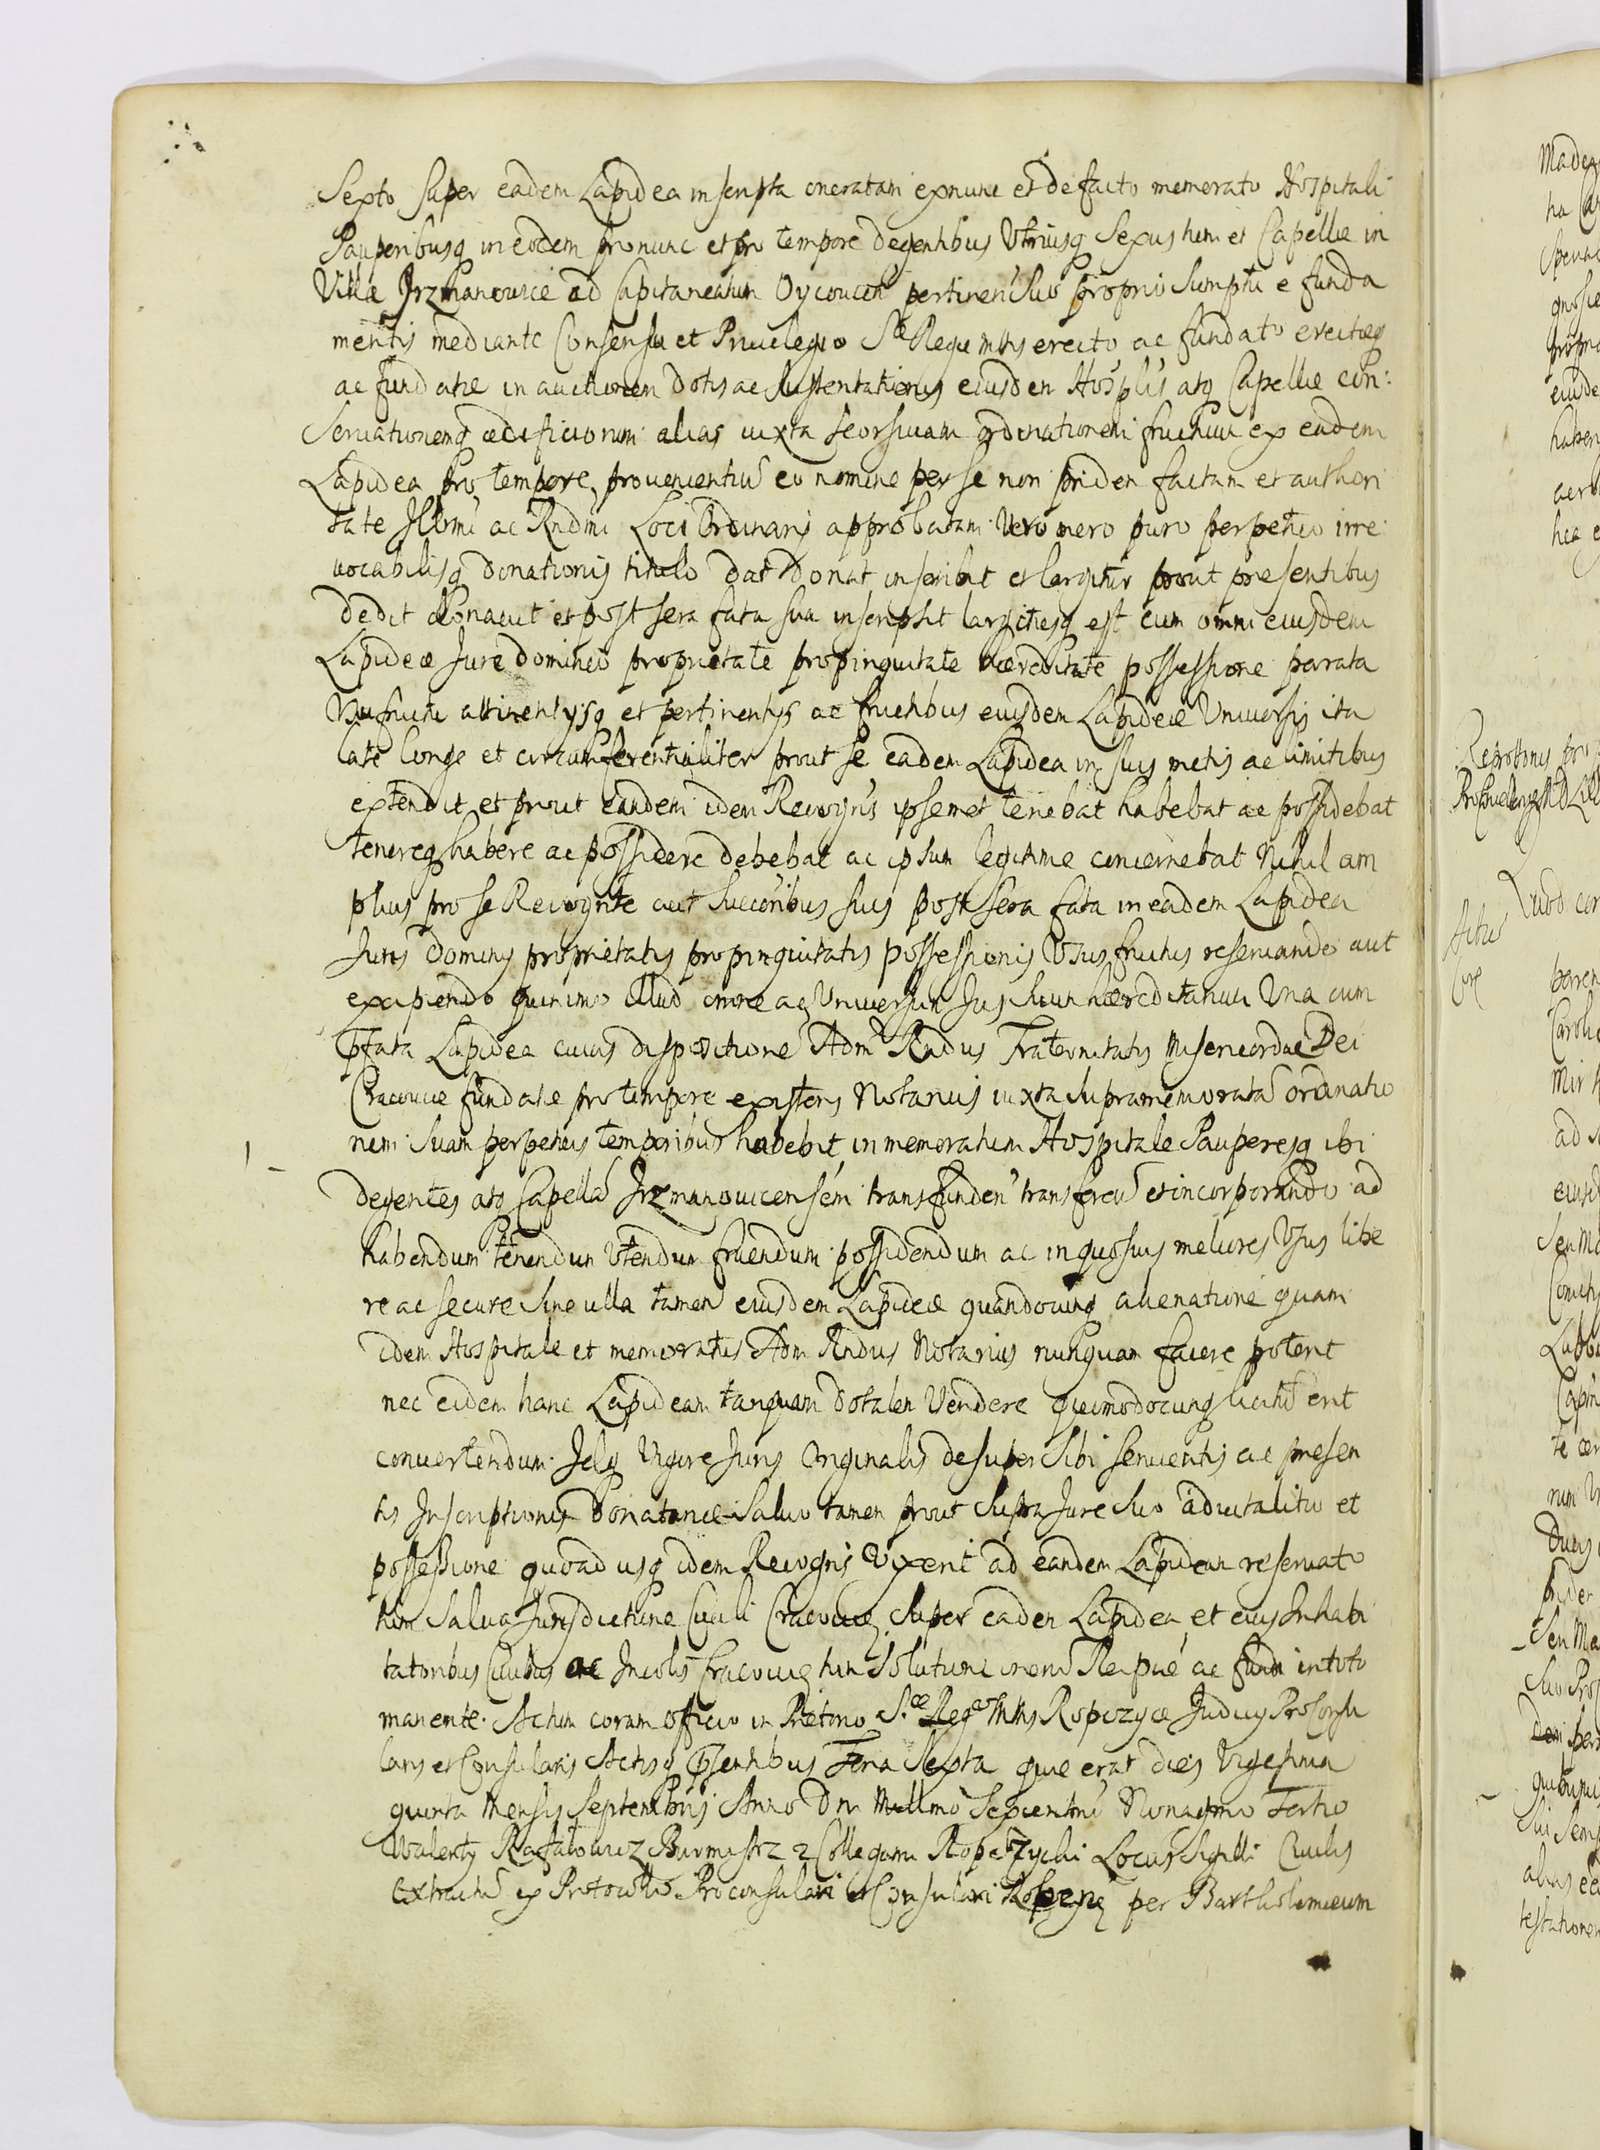 Sexto super eadem Lapidea inscripta oneratam exnunc et de facto memorato Hospitali
Pauperibusq in eodem pro nunc et pro tempore degentibus Utriusq Sexus hum et Capellæ in
Villa Jrzmanowice ad Capitaneatum Oycoucen pertinen Suo proprio Sumptu e funda
mentis mediante Consensu et Priuilegio Sæ Regiæ Mtis erecto ac fundato erectæq
ac fundatæ in auctionem dotis ac Sustentationis eiusdem Hosplis atq Capellæ con:
Seruationemq ædificiorum alias iuxta seorsiuam ordinationem fructuum ex eadem
Lapidea pro tempore prouenientiu eo nomine per se non pridem factam et authori
tate Jllmi ac Rndmi Loci Ordinarij approbatam Vero mero puro perpetuo irre
uocabilisq donationis titulo dat donat inscribit et largitur prout presentibus
dedit donauit et post sera fata sua inscripsit largitusq est cum omni eiusdem
Lapideæ Jure dominio proprietate propinquitate hæreditate possessione parata
Usufructu attinentijsq et pertinentijs ac fructibus eiusdem Lapideæ Uniuersis ita
late longe et circumferentialiter prout se eadem Lapidea in suis metis ac limitibus
extendit et prout eandem idem Recogns ipsemet tenebat habebat ac possidebat
tenereq habere ac possidere debebat ac ipsum legitime concernebat Nihil am
plius pro se Recognte aut Succoribus suis post sera fata in eadem Lapidea
Juris dominij proprietatis propinquitatis possessionis Usus fructus reseruando aut
excipiendo quinimo illud omne aq Uniuersum Jus suum hæreditarium Una cum
pfata Lapidea cuius dispositione Adm Rndus Fraternitatis Misericordiæ Dei
Cracouiæ fundatæ pro tempore existens Notarius iuxta supramemorata ordinatio
nem suam perpetuis temporibus habebit in memoratum Hospitale Pauperesq ibi
degentes atq Capella Jrzmanouicensem transfunden transferen et incorporando ad
habendum tenendum Utendum fruendum possidendum ac in quosuis meliores Usus libe
re ac secure sine ulla tamen eiusdem Lapideæ quandocunq alienatione quam
idem Hospitale et memoratus Adm Rndus Notarius nunquam facere poterit
nec eidem hanc Lapideam tanquam dotalem Vendere quomodocunq licitu erit
conuertendum Jdq Vigore Juris Originalis desuper Sibi seruientis ac presen
tis Jnscriptionis Donatoriæ Saluo tamen prout Supra Jure Suo aduitalitio et
possessione quoad usq idem Recogns Vixerit ad eandem Lapideam reseruato
tum Salua Jurisdictione Ciuili Cracouien Super eadem Lapidea et eius Jnhabi
tatoribus Ciuibus ac Jncolis Cracouien tum Solutione onerum Reipuc ac fundi in toto
manente. Actum coram officio in Prætorio S.æ Regæ Mtis Ropczycæ Judicij Proconsu
laris et Consularis Actisq psentibus Feria Sexta quæ erat dies Vigesima
quinta Mensis Septembris Anno Dni Millmo Sexcentmo Nonagmo Tertio
Walenty Rafałowicz Burmistrz z Collegami Ropczyckı Locus Sigilli Ciuilis
Extractu ex Protocollo Proconsulari et Consulari per Bartholomæum